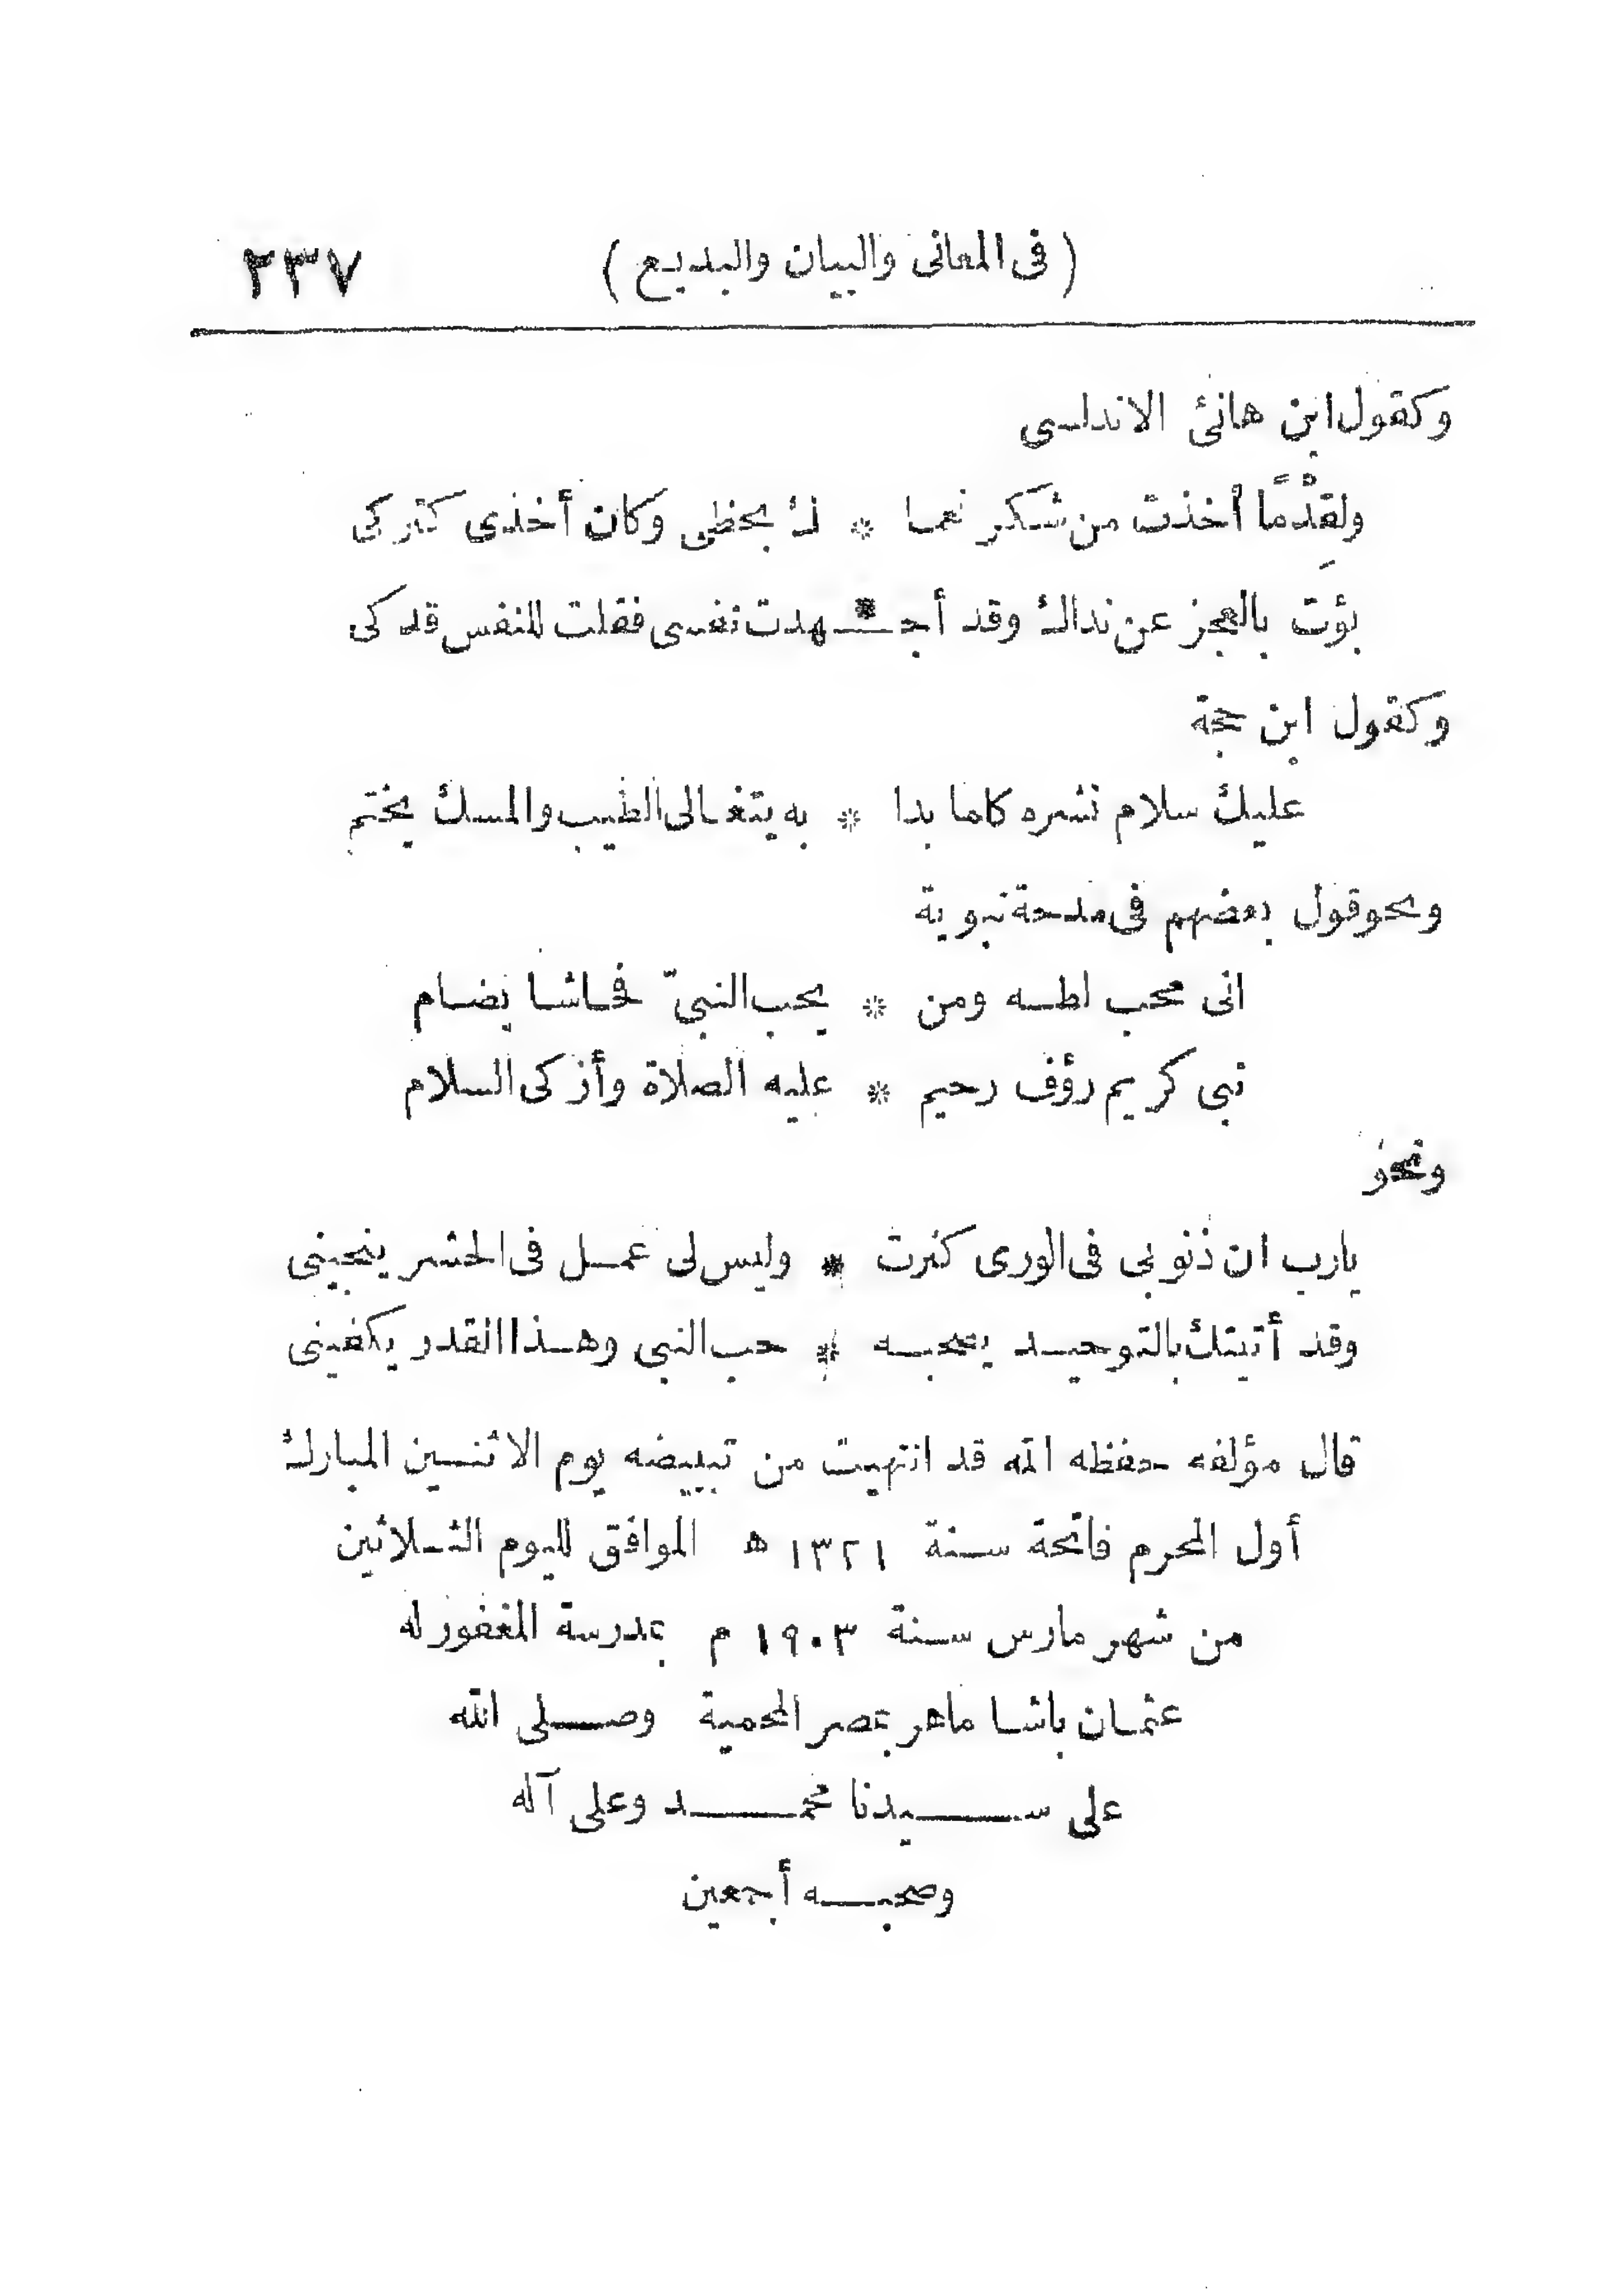 (فى المعانى والبيان والبديع) ٢٣٧
وكقول ابن هانئ الاندلسى
ولقِدْمًا أخذت من شكر نعما * ك بحظى وكان أخذى كتركى
بؤت بالعجز عن نداك وقد أجـ * ـهدت نفسى فقلت للنفس قدكى
وكقول ابن حجة
عليك سلام نشره كلما بدا * به يتغالى الطيب والمسك يختم
ونحو قول بعضهم فى مدحة نبوية
انى محب لطه ومن * يحب النبىّ فحاشا يضام
نبى كريم رؤف رحيم * عليه الصلاة وأزكى السلام
ونحو
يارب ان ذنوبى فى الورى كثرت * وليس لى عمل فى الحشر ينجينى
وقد أتيتك بالتوحيد يصحبه * حب النبى وهذا القدر يكفينى
قال مؤلفه حفظه الله قد انتهيت من تبييضه يوم الاثنين المبارك
أول المحرم فاتحة سنة ١٣٢١ ه الموافق لليوم الثلاثين
من شهر مارس سنة ١٩٠٣ م بمدرسة المغفور له
عثمان باشا ماهر بمصر المحمية وصلى الله
على سيدنا محمد وعلى آله
وصحبه أجمعين